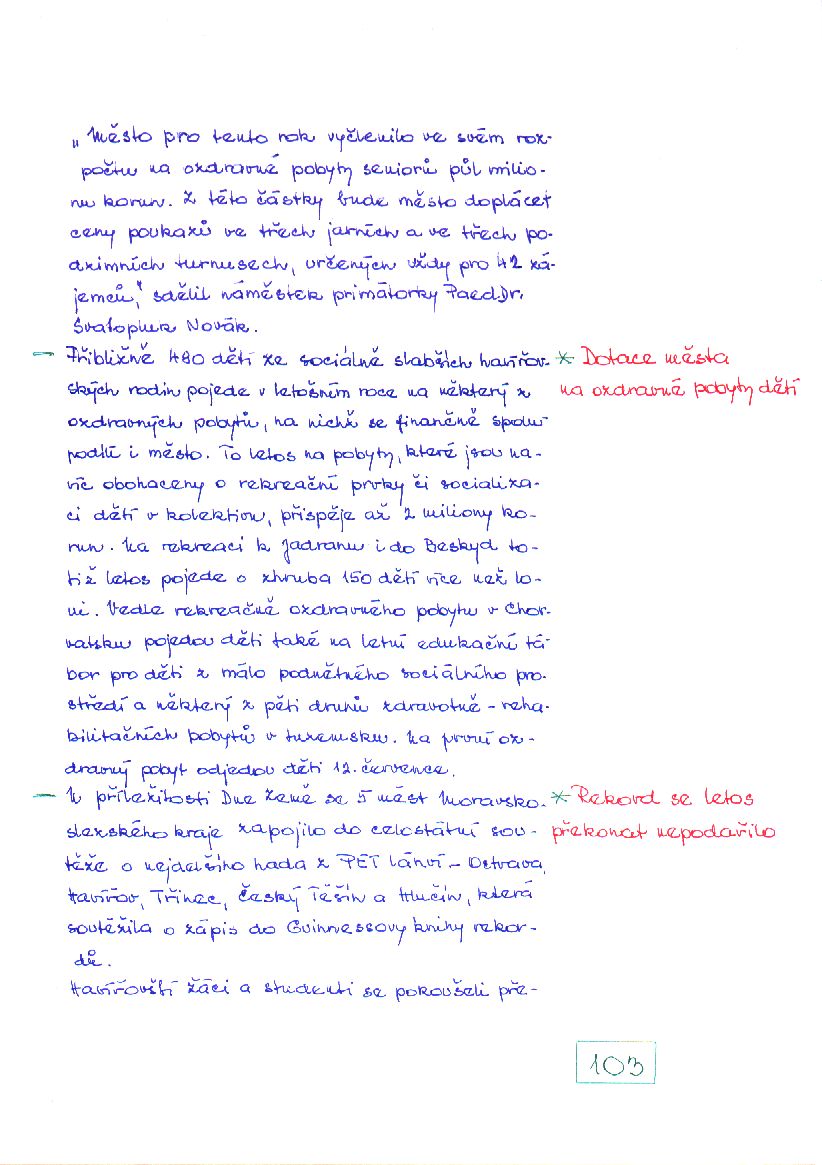 „Město pro tento rok vyčlenilo ve svém roz-
počtu na ozdravné pobyty seniorů půl milio-
nu korun. Z této částky bude město doplácet
ceny poukazů ve třech jarních a ve třech po-
dzimních turnusech, určených vždy pro 42 zá-
jemců," sdělil náměstek primátorky PaedDr.
Svatopluk Novák.
— Přibližně 480 dětí ze sociálně slabších havířov- * Dotace města
ských rodin pojede v letošním roce na některý z na ozdravné pobyty dětí
ozdravných pobytů, na nichž se finančně spolu-
podílí i město. To letos na pobyty, které jsou na-
víc obohaceny o rekreační prvky či socializa-
ci dětí v kolektivu, přispěje až 2 miliony ko-
run. Na rekreaci k Jadranu i do Beskyd to-
tiž letos pojede o zhruba 150 dětí více než lo-
ni. Vedle rekreačně ozdravného pobytu v Chor-
vatsku pojedou děti také na letní edukační tá-
bor pro děti z málo podnětného sociálního pro-
středí a některý z pěti druhů zdravotně-reha-
bilitačních pobytů v tuzemsku. Na první oz-
dravný pobyt odjedou děti 12. července.
— U příležitosti Dne Země se 5 měst Moravsko- * Rekord se letos
slezského kraje zapojilo do celostátní sou- překonat nepodařilo
těže o nejdelšího hada z PET láhví – Ostrava,
Havířov, Třinec, Český Těšín a Hlučín, která
soutěžila o zápis do Guinnessovy knihy rekor-
dů.
Havířovští žáci a studenti se pokoušeli pře-
103